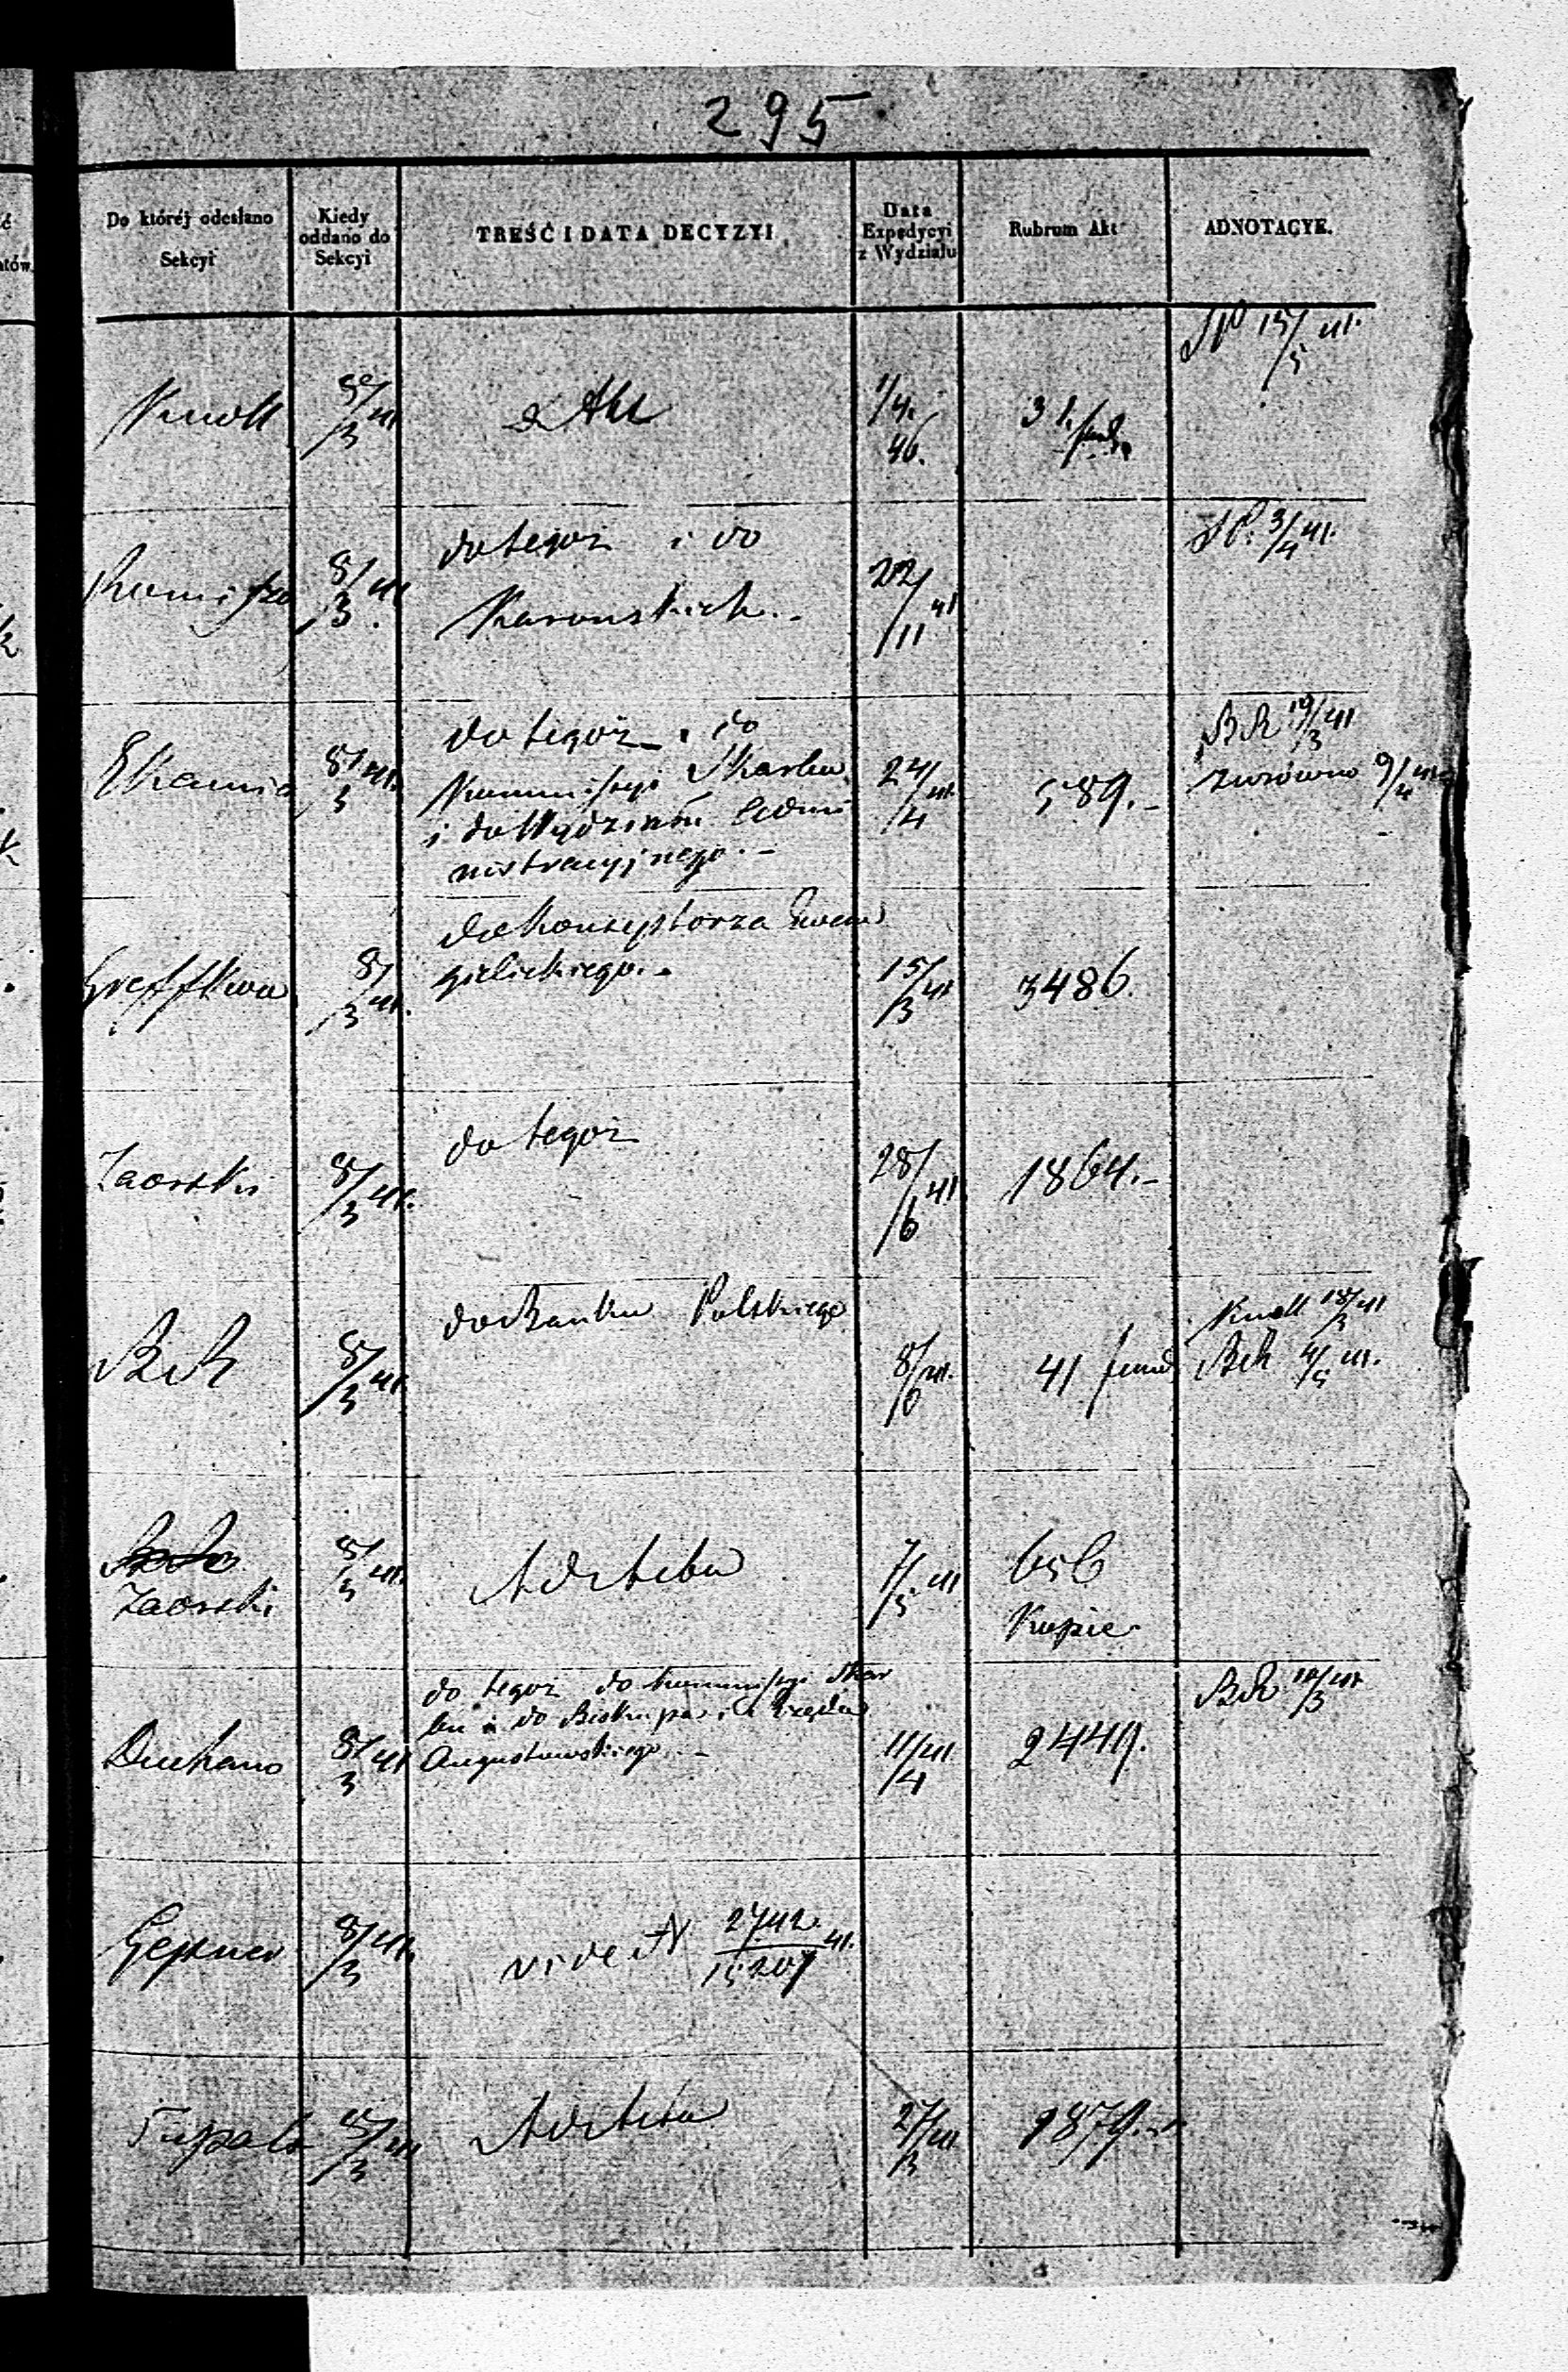 295
Do któréj odesłano Sekcyi
Kiedy oddano do Sekcyi
TREŚĆ I DATA DECYZYI
Data Expedycyi z Wydziału
Rubrum Akt
ADNOTACYE.
Knoll 8/3 41 1/4. 46. 31. 15/5 41.
8/3 41. do tegoż i do 22/11 41 3/4 41.
Karouskich.
8/3 41. do tegoż i do 24/4 41. 589. BR 19/3 41
Kommissyi Skarbu 9/4 41
i do Wydziału Admi
nistracyjnego.
8/3 41. do Konsystorza Ewan
gielickiego. 15/3 41 3486.
Zaorski 8/3 41. do tegoż 28/6 41 1864.
BR 8/3 41. do Banku Polskiego 8/6 41. 41 fund Knoll 18/3 41
BR 4/5 41.
Zaorski 8/3 41. Ad Acta 7/5 41 656
Kupie
do tegoż do Kommissyi Skar BR 10/3 41
bu i do Biskupa i Urzędu
8/3 41 Augustowskiego. 11/4 41 2449.
Gepner 8/3 41. vide N 2742/15207 41.
8/3 41 Ad Acta 27/3 41 9879.